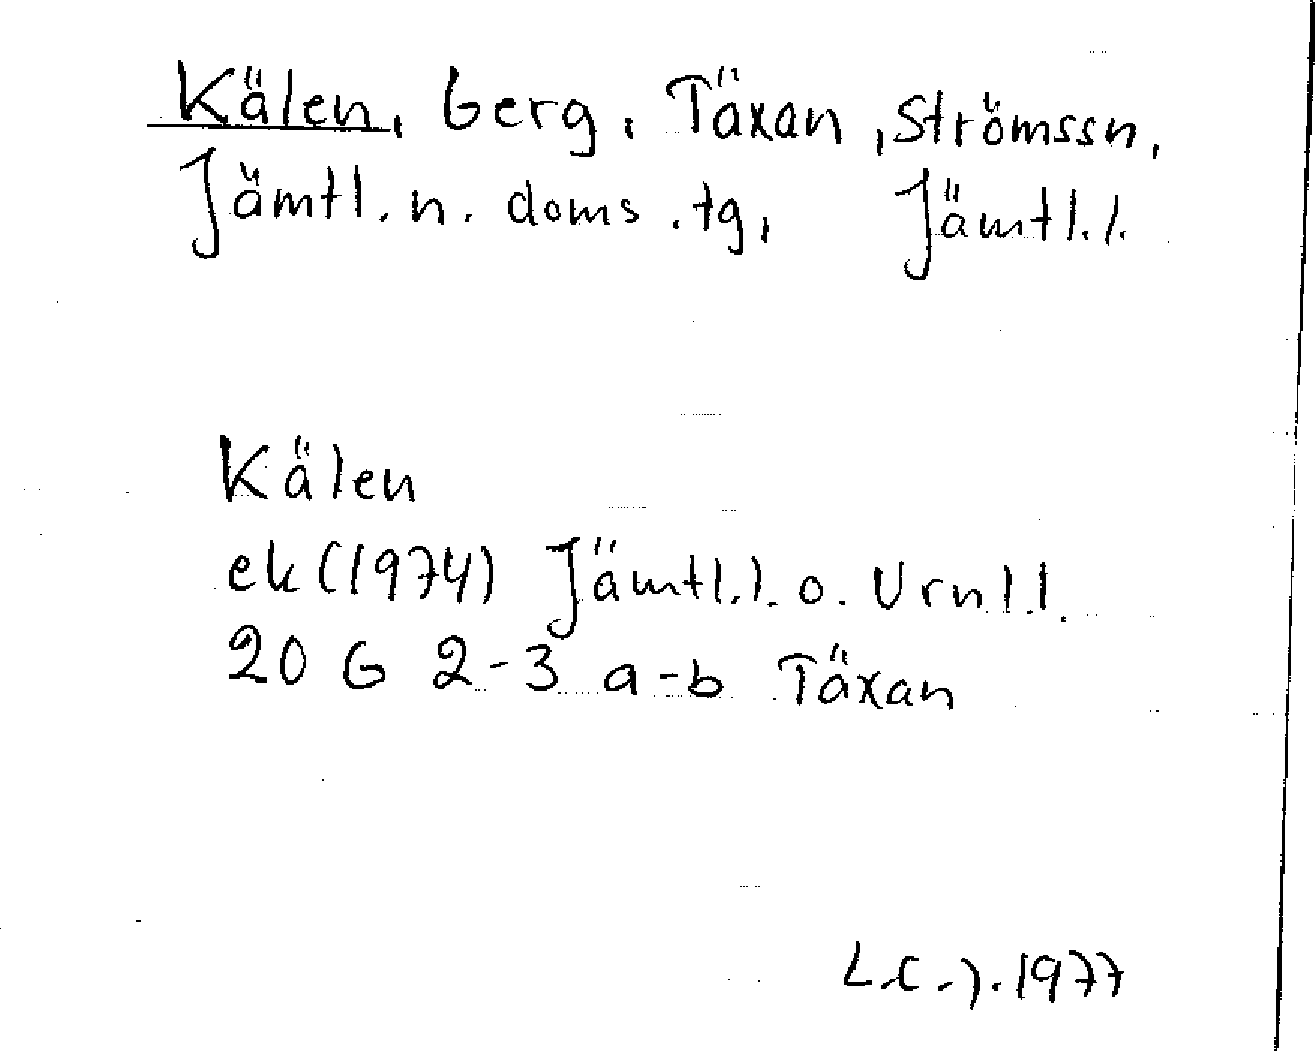 Kälen, berg, Täxan, Strömssn,
Jämtl. n. doms. tg, Jämtl. l.
Kälen
ek (1974) Jämtl. l. o. Urnl l.
20 G 2-3 a-b Täxan
L.C.J. 1977